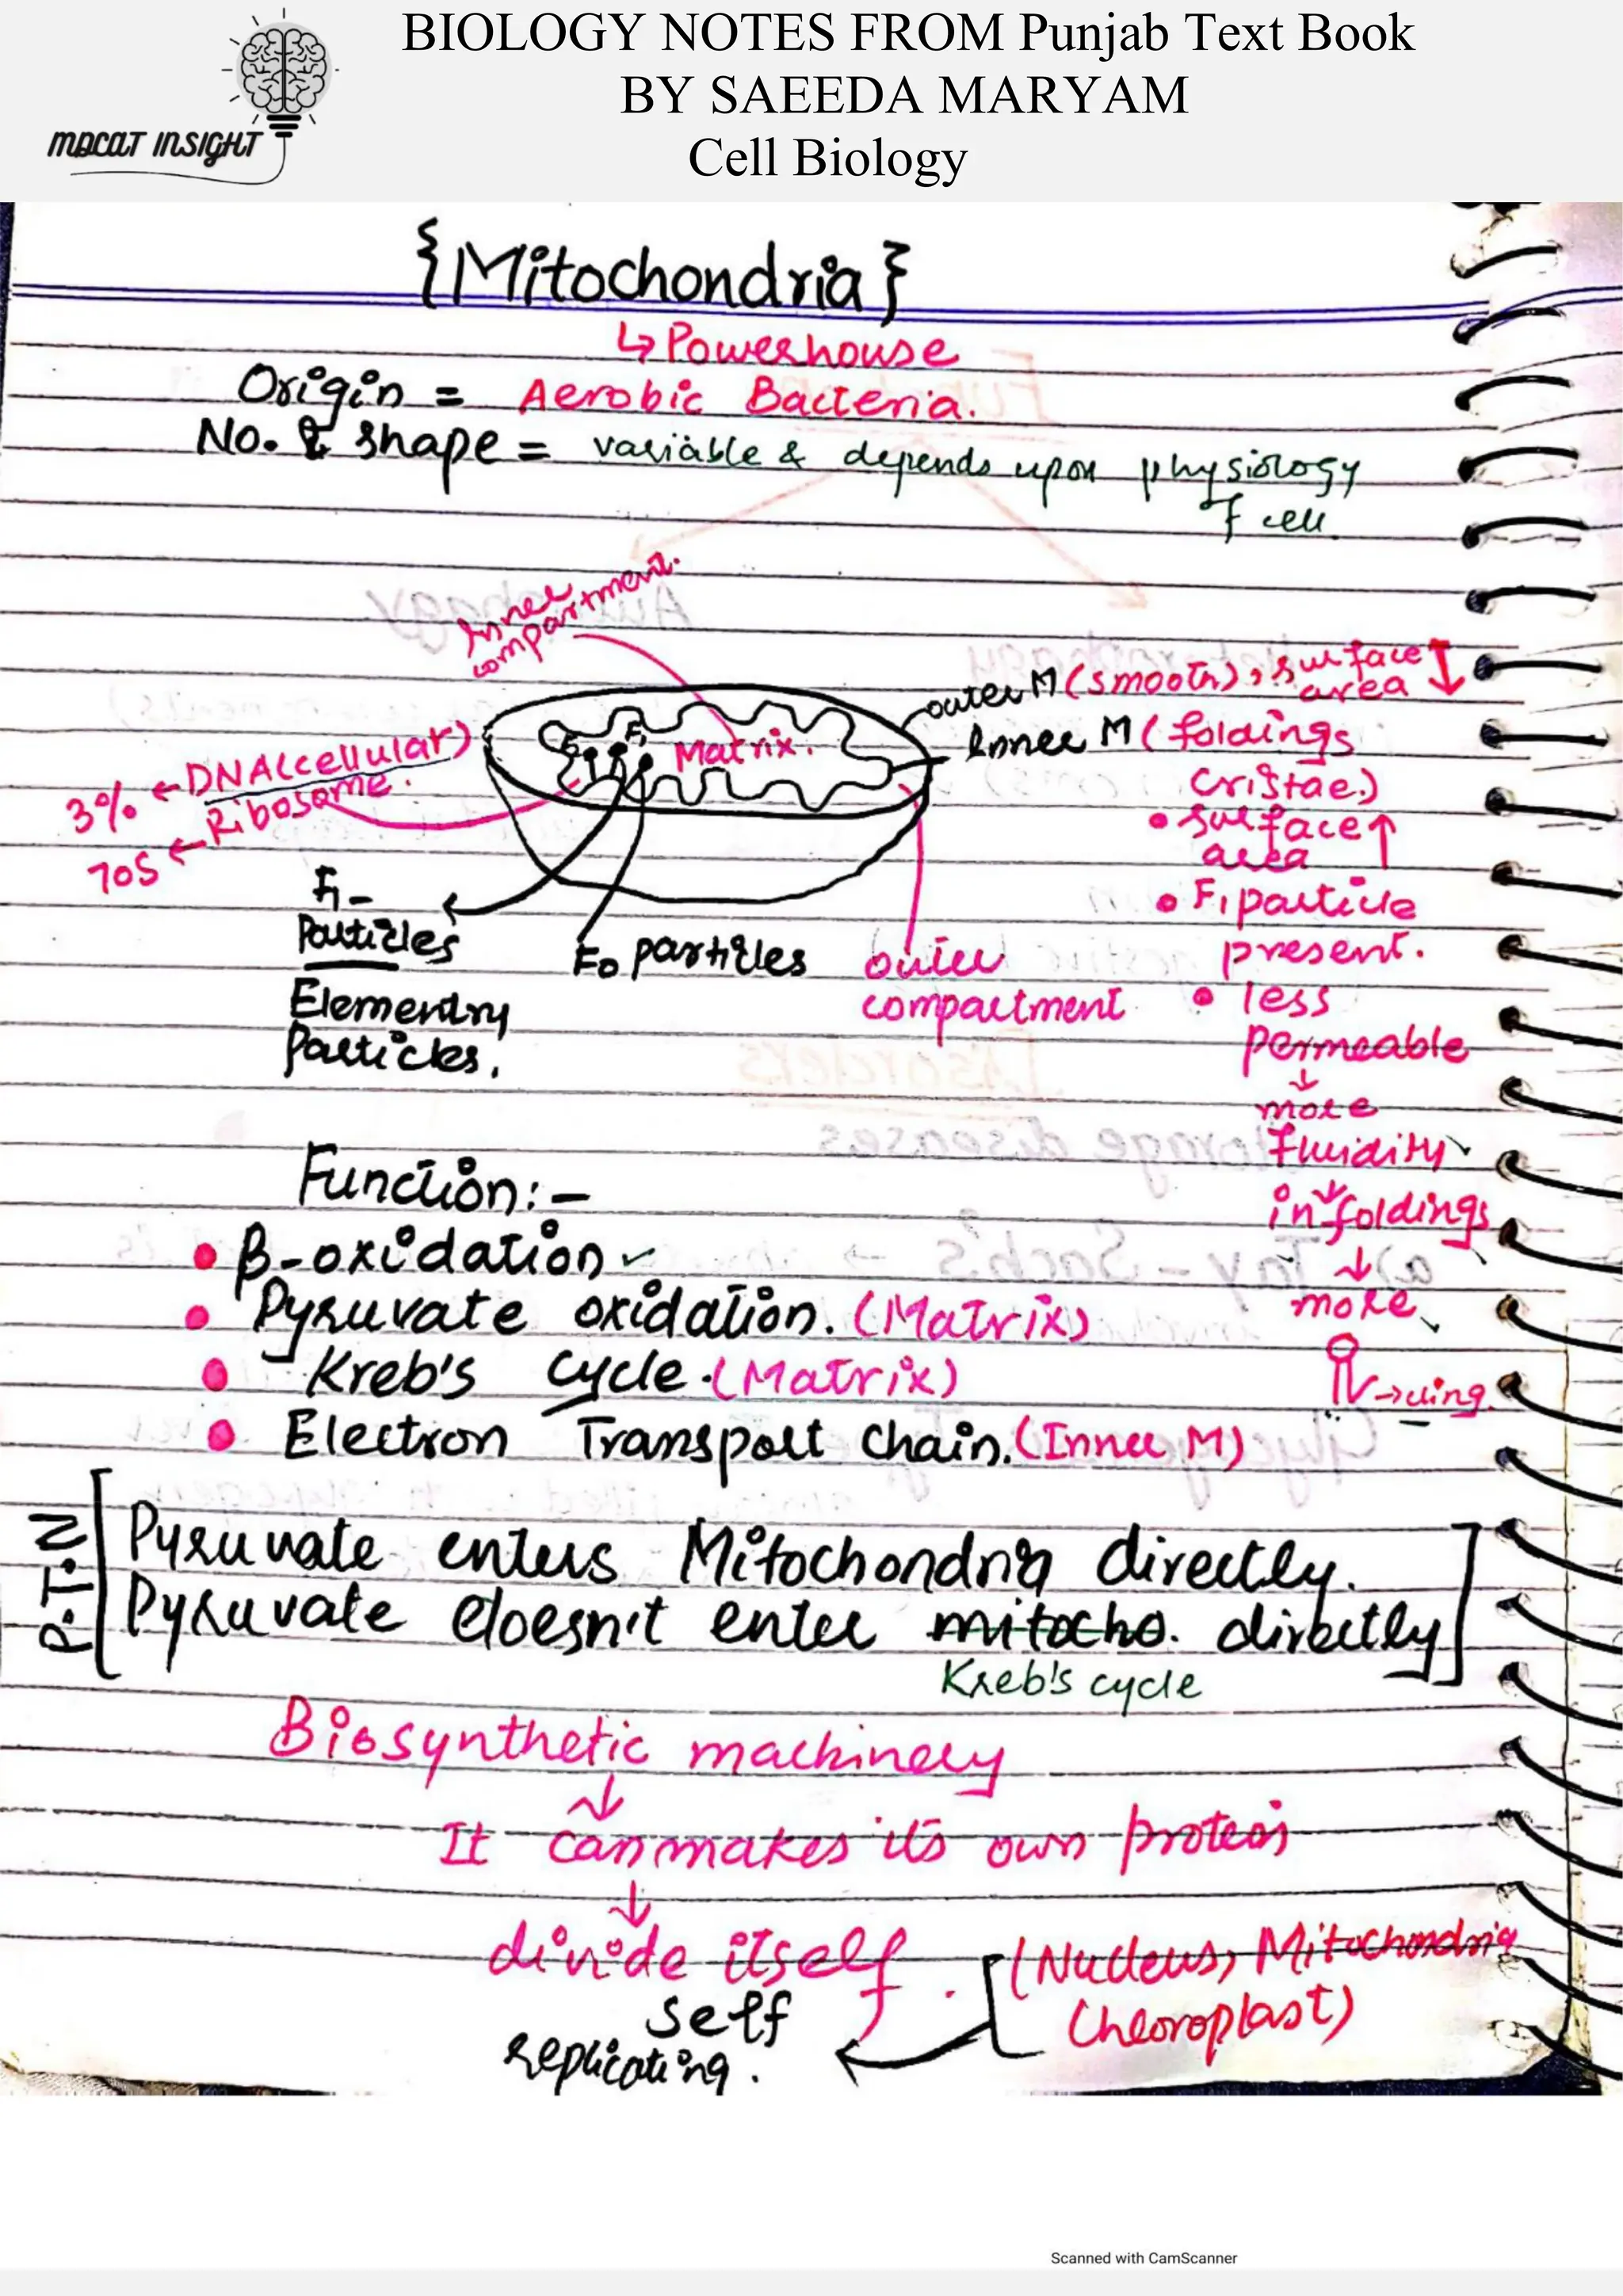 BIOLOGY NOTES FROM Punjab Text Book
BY SAEEDA MARYAM
Cell Biology
MDCAT INSIGHT
{Mitochondria}
↳ Powerhouse
Origin = Aerobic Bacteria.
No. & shape = variable & depends upon physiology
of cell
Inner
compartment.
outer M (smooth), surface
area ↓
Inner M (foldings
cristae.)
• surface ↑
area
• F1 particle
present.
• less
permeable
↓
more
fluidity
↓
infoldings
↓
more
Matrix.
F1
3% ← DNA (cellular)
70S ← Ribosome.
F1-
Particles
Elementry
Particles.
F0 particles
outer
compartment
Function:-
• β-oxidation
• Pyruvate oxidation. (Matrix)
• Kreb's cycle. (Matrix)
• Electron Transport chain. (Inner M)
P.T.N
[Pyruvate enters Mitochondria directly.
Pyruvate doesn't enter mitocho. directly]
Kreb's cycle
Biosynthetic machinery
↓
It can makes its own protein
↓
divide itself.
self
replicating.
(Nucleus, Mitochondria
Chloroplast)
Scanned with CamScanner